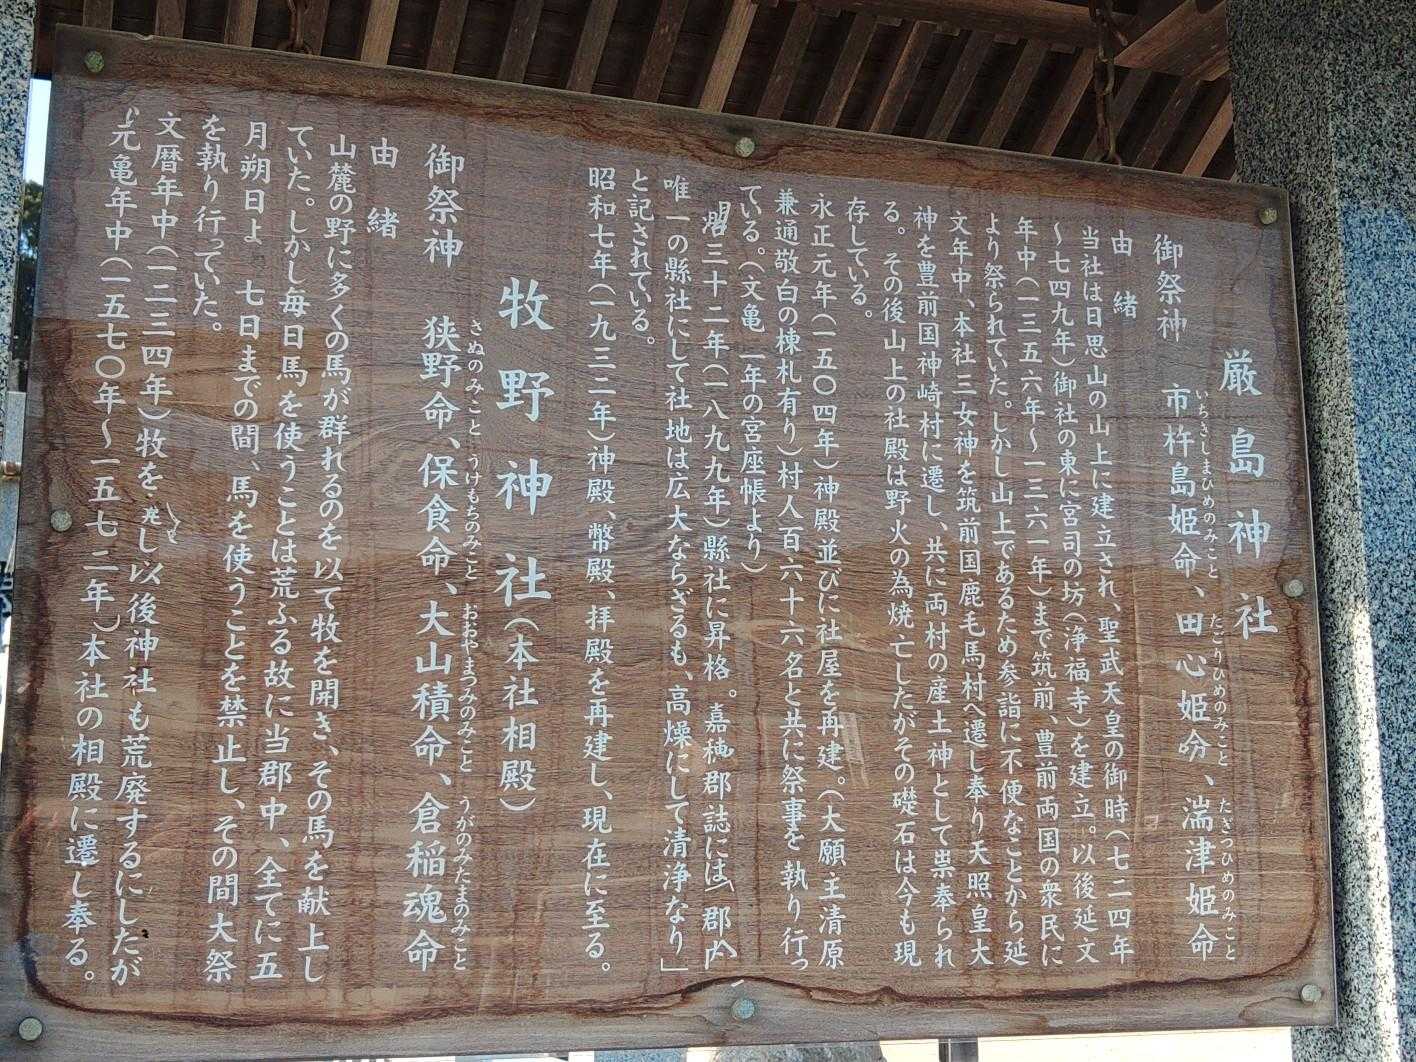 厳島神社
御祭神 市杵島姫命、田心姫命、湍津姫命
いちきしまひめのみこと たごりひめのみこと たぎつひめのみこと
由緒
当社は日思山の山上に建立され、聖武天皇の御時(七二四年
〜七四九年)御社の東に宮司の坊(浄福寺)を建立。以後延文
年中(一三五六年〜一三六一年)まで筑前、豊前両国の衆民に
より祭られていた。しかし山上であるため参詣に不便なことから延
文年中、本社三女神を筑前国鹿毛馬村へ遷し奉り天照皇大
神を豊前国神崎村に遷し、共に両村の産土神として崇奉られ
る。その後山上の社殿は野火の為焼亡したがその礎石は今も現
存している。
永正元年(一五〇四年)神殿並びに社屋を再建。(大願主清原
兼通敬白の棟札有り)村人百六十六名と共に祭事を執り行っ
ている。(文亀 年の宮座帳より)
明治三十二年(一八九九年)縣社に昇格。嘉穂郡誌には「郡内
唯一の縣社にして社地は広大ならざるも、高燥にして清浄なり」
と記されている。
昭和七年(一九三二年)神殿、幣殿、拝殿を再建し、現在に至る。
牧野神社(本社相殿)
御祭神 狭野命、保食命、大山積命、倉稲魂命
さぬのみこと うけもちのみこと おおやまつみのみこと うがのみたまのみこと
由緒
山麓の野に多くの馬が群れるのを以て牧を開き、その馬を献上し
ていた。しかし毎日馬を使うことは荒ふる故に当郡中、全てに五
月朔日よ 七日までの間、馬を使うことを禁止し、その間大祭
を執り行っていた。
文暦年中(一二三四年)牧を し以後神社も荒廃するにしたが
元亀年中(一五七〇年〜一五七二年)本社の相殿に遷し奉る。